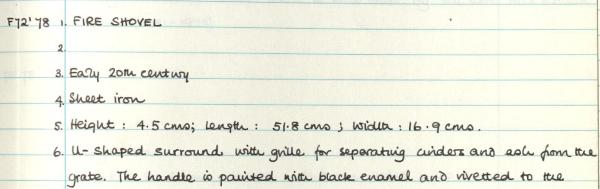 F72'78 1. FIRE SHOVEL
2.
3. Early 20th century
4. Sheet iron
5. Height : 4.5 cms; length : 51.8 cms ; width : 16.9 cms.
6. U-shaped surround with grille for seperating cinders and ash from the
grate. The handle is painted with black enamel and rivetted to the